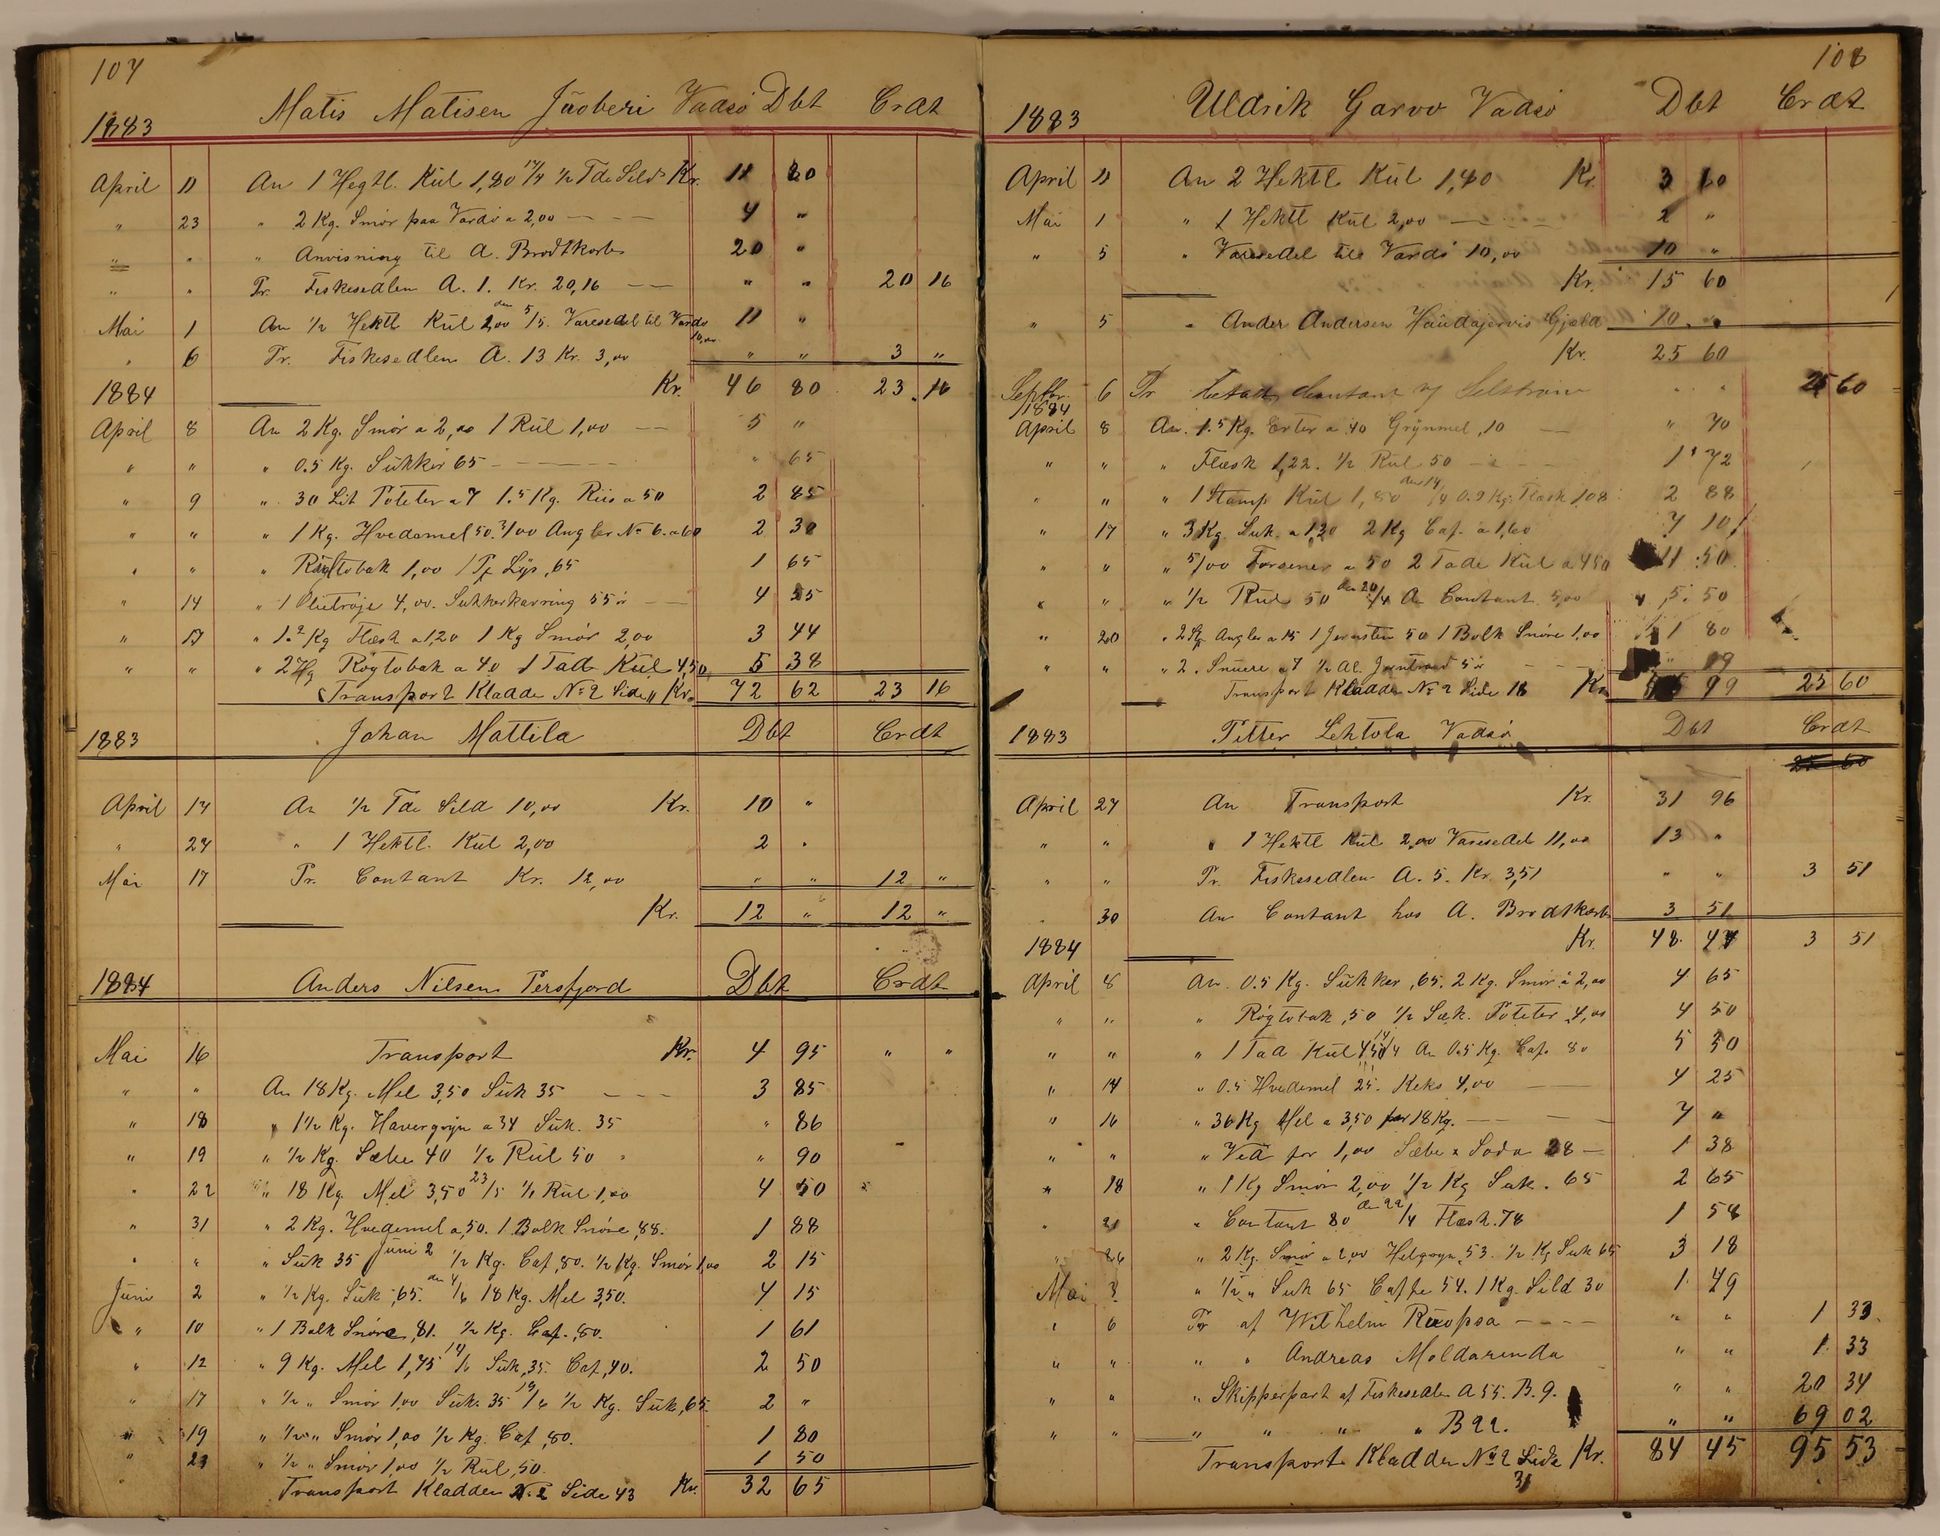 107
1883 Matis Matisen Juoberi Vadsö Dbt Crdt
April 11 An 1 Hegtl. Kul 1,80 17/4 1/2 Tde Sild Kr. 11 80
" 23 " 2 Kg. Smör paa Vardö a 2,00 4 "
" " " Anvisning til A. Brodtkorb 20 "
" " Pr. Fiskesedlen A. 1. Kr. 20,16 " " 20 16
Mai 1 An 1/2 Hektl Kul 2,00 den 5/5. Varesedel til Vardö 10,00 11 "
" 6 Pr. Fiskesedlen A. 13 Kr. 3,00 " " 3 "
1884 Kr. 46 80 23 16
April 8 An 2 Kg. Smör a 2,00 1 Rul 1,00 5 "
" " " 0.5 Kg. Sukker 65 " 65
" 9 " 30 Lit Poteter a 7 1.5 Kg. Riis a 50 2 85
" " " 1 Kg. Hvedemel 50. 3/00 Angler No 6. a 60 2 30
" " " Rögtobak 1,00 1 Pk Lys ,65 1 65
" 14 " 1 Olietröje 4,00. Sukkerkavring 55 ör 4 55
" 17 " 1.2 Kg Flesk a 1,20 1 Kg Smör 2,00 3 44
" " " 2 Hg Rögtobak a 40 1 Tad Kul 4,50 5 38
Transport Kladde No 2 Side " Kr. 72 62 23 16
1883 Johan Mattila Dbt Crdt
April 14 An 1/2 Tde Sild 10,00 Kr. 10 "
" 27 " 1 Hektl. Kul 2,00 2 "
Mai 17 Pr. Contant Kr. 12,00 " " 12 "
Kr. 12 " 12 "
1884 Anders Nilsen Persfjord Dbt Crdt
Mai 16 Transport Kr. 4 95 " "
" " An 18 Kg. Mel 3,50 Suk 35 3 85
" 18 " 1 1/2 Kg. Havergryn a 34 Suk. 35 " 86
" 19 " 1/2 Kg. Sæbe 40 1/2 Rul 50 " 90
" 22 " 18 Kg. Mel 3,50 23/5 1/1 Rul 1,00 4 50
" 31 " 2 Kg. Hvedemel a ,50. 1 Bolk Snöre ,88. 1 88
" " " Suk 35 Juni 2 1/2 Kg. Caf ,80. 1/2 Kg. Smör 1,00 2 15
Juni 2 " 1/2 Kg. Suk ,65. den 4/6 18 Kg. Mel 3,50. 4 15
" 10 " 1 Bolk Snöre ,81. 1/2 Kg. Caf. ,80. 1 61
" 12 " 9 Kg. Mel 1,75 14/6 Suk ,35. Caf ,40. 2 50
" 17 " 1/2 " Smör 1,00 Suk. 35 18/6 1/2 Kg. Suk ,65. 2 "
" 19 " 1/2 " Smör 1,00 1/2 Kg. Caf ,80. 1 80
" 23 " 1/2 " Smör 1,00 1/2 Rul ,50. 1 50
Transport Kladden N. 2 Side 43 Kr. 32 65
108
1883 Uldrik Garvo Vadsö Dbt Crdt
April 11 An 2 Hektl Kul 1,80 Kr. 3 60
Mai 1 " 1 Hektl Kul 2,00 2 "
" 5 " Varesedel til Vardö 10,00 10 "
Kr. 15 60
" 5 " Ander Andersen Haudajervis Gjæld 10 "
Kr. 25 60
Septbr. 6 Pr Contant v/ " " 25 60
1884
April 8 An. 1.5 Kg. Erter a 40 Grynmel ,10 " 70
" " " Flæsk 1,22. 1/2 Rul 50 1 72
" " " 1 Stamp Kul 1,80 den 14/4 0.9 Kg. Flæsk 1,08 2 88
" 17 " 3 Kg. Suk. a 1,30 2 Kg Caf. a 1,60 7 10
" " " 5/00 Forsener a 50 2 Tade Kul a 4,50 11 50
" " " 1/2 Rul 50 den 20/4 An Contant 5,00 5 50
" 20 " 2 Angler a 15 1 50 1 Bolk Snöre 1,00 1 80
" " " 2. Snuere a 7 1/2 Al. 5 ör " 19
Transport Kladden No 2 Side 18 Kr. 99 25 60
1883 Pitter Lehtola Vadsö Dbt Crdt
25 60
April 27 An Transport Kr. 31 96
" " " 1 Hektl Kul 2,00 Varesedel 11,00 13 "
" " Pr. Fiskesedlen A. 5. Kr. 3,51 " " 3 51
" 30 An Contant hos A. Brodtkorb 3 51
1884 Kr. 48 47 3 51
April 8 An. 0.5 Kg. Sukker ,65. 2 Kg. Smör a 2,00 4 65
" " " Rögtobak ,50 1/2 Sæk. Poteter 4,00 4 50
" " " 1 Tad Kul 4,50 14/4 An 0.5 Kg. Caf. 80 5 30
" 14 " 0.5 Hvedemel 25. Keks 4,00 4 25
" 16 " 36 Kg Mel a 3,50 per 18 Kg. 7 "
" " " Ved for 1,00 Sæbe & Soda 38 1 38
" 18 " 1 Kg Smör 2,00 1/2 Kg Suk. 65 2 65
" 21 " Contant 80 den 22/4 Flæsk. 78 1 58
" 26 " 2 Kg. Smör a 2,00 Helgryn ,53. 1/2 Kg Suk 65 3 18
Mai 3 " 1/2 " Suk 65 Caffe 54. 1 Kg. Sild 30 1 49
" 6 Pr af Wilhelm Ruopsa " " 1 33
" " " " Andreas Moldarinda " " 1 33
" " " Skipperpart af Fiskesedlen A 55. B. 9. " " 20 34
" " " " " " B 22. " " 69 02
Transport Kladden No 2 Side 31 Kr. 84 45 95 53